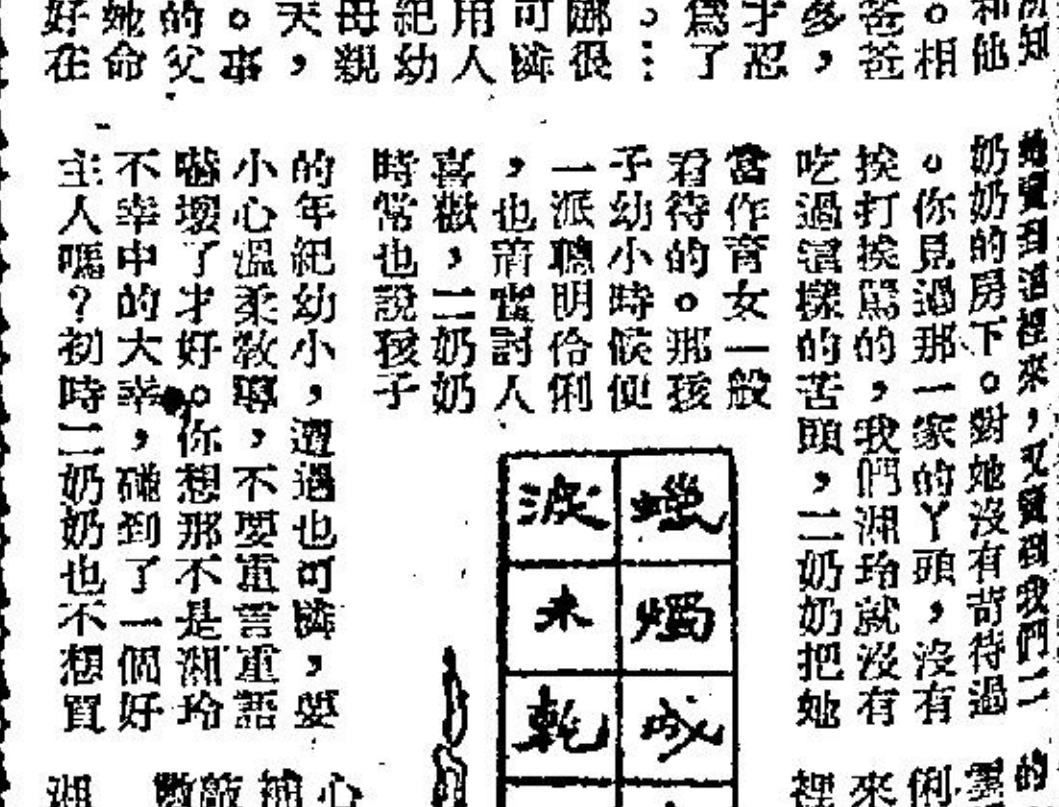 知
和他
。相
爸爸
多，
才忍
為了
：
很
可憐
用人
紀幼
母親
天，
。事
的父
她命
好在
她賣到這裡來，又賣到我們二
奶奶的房下。對她沒有苛待過
。你見過那一家的丫頭，沒有
挨打挨罵的，我們湘玲就沒有
吃過這樣的苦頭，二奶奶把她
當作育女一般
看待的。那孩
子幼小時候便
一派聰明伶俐
，也着實討人
喜歡，二奶奶
時常也說孩子
的年紀幼小，遭遇也可憐，要
小心溫柔教導，不要重言重語
嚇壞了才好。你想那不是湘玲
不幸中的大幸，碰到了一個好
主人嗎？初時二奶奶也不想買
蠟燭成
淚未乾
的
俐
來
裡
心
補
湘